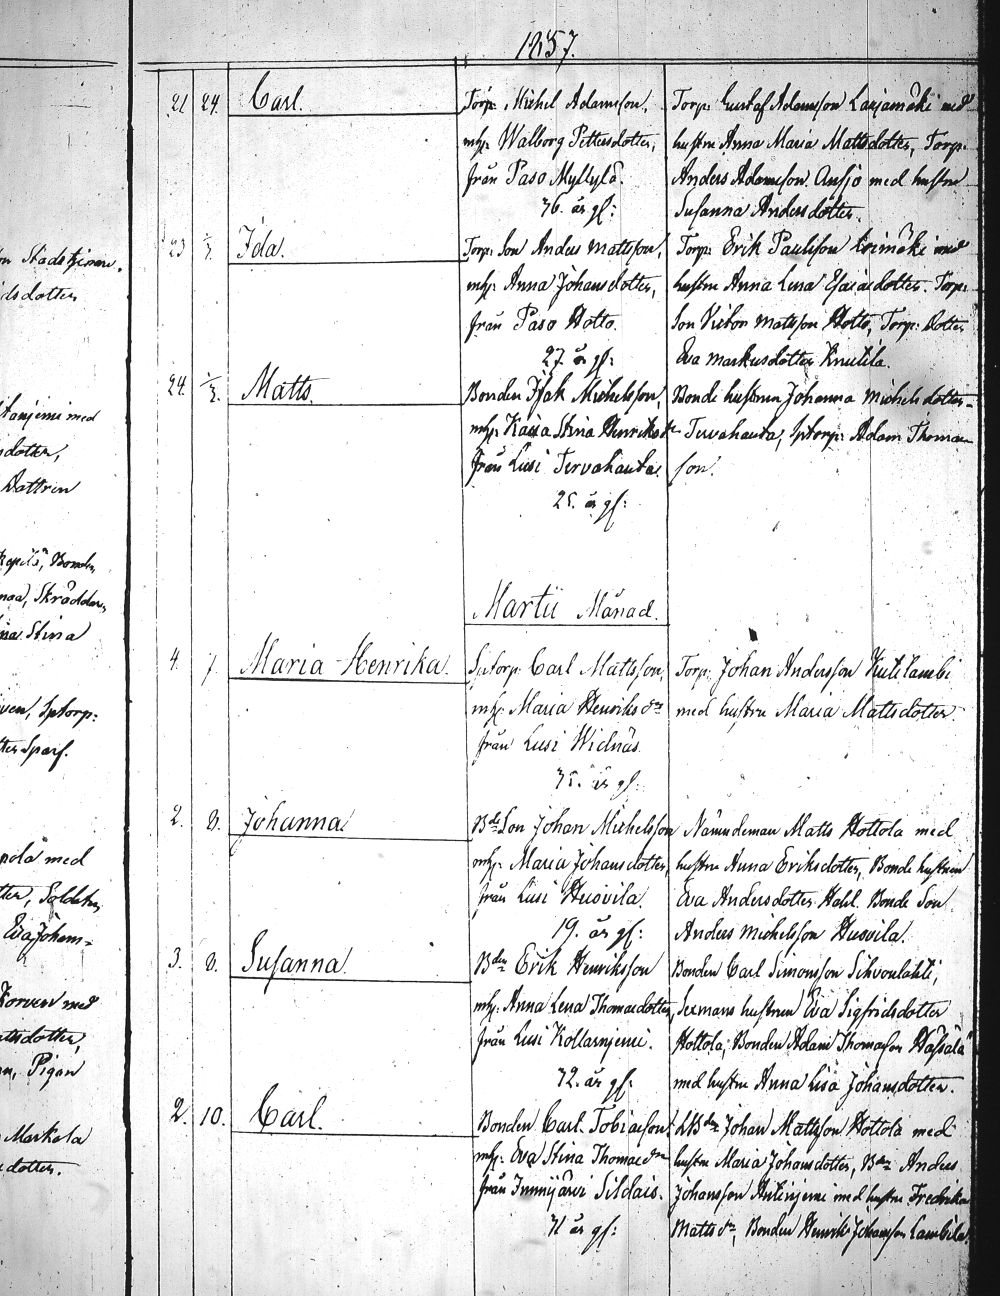 1857.
21 24 Carl. Torp: Michel Adamsson, Torp: Gustaf Adamsson Lasjamäki med
mh: Walborg Pettersdotter, hustru Anna Maria Mattsdotter, Torp:
från Paso Myllylä. Anders Adamsson Ansjo med hustru
36. år gl: Susanna Andersdotter.
23 1/3. Ida. Torp: Son Anders Mattsson, Torp: Erik Paulsson med
mh: Anna Johansdotter, hustru Anna Lena Esaiasdotter. Torp:
från Paso Hotto. Son Victor Mattsson Hotto, Torp: Dotter
27. år gl: Eva Markusdotter Knutila.
24. 1/3. Matts. Bonden Isak Michelsson, Bonde hustrun Johanna Michelsdotter
mh: Kaisa Stina Henriksdr Tervahauta, Sptorp: Adam Thomas
från Lusi Tervahauta. son.
25. år gl:
Martii Månad.
4. 7. Maria Henrika. Sptorp: Carl Mattsson, Torp: Johan Andersson Kutilambi
mh: Maria Henriksdr med hustru Maria Mattsdotter.
från Lusi Widnäs.
35. år gl:
2. 8. Johanna Bde Son Johan Michelsson Nämndeman Matts Hottola med
mh: Maria Johansdotter, hustru Anna Eriksdotter, Bonde hustrun
från Lusi Husvila. Eva Andersdotter Bonde Son
19. år gl: Anders Michelsson Husvila.
3. 8. Susanna. Bden Erik Henriksson Bonden Carl Simonsson Sihvonlahti,
mh: Anna Lena Thomasdotter, hustrun Eva Sigfridsdotter
från Lusi Koltarniemi. Hottola, Bonden Adam Thomasson Hassala
42. år gl: med hustru Anna Lisa Johansdotter.
2. 10. Carl. Bonden Carl Tobiasson, Johan Mattsson Hottola med
mh: Eva Stina Thomasdr hustru Maria Johansdotter, Bden Anders
från Imnijärvi Sildais. Johansson Antinjemi med hustru Fredrika
31 år gl: Mattsdr, Bonden Henrik Johansson Lambila.
Stadstjenare.
dotter
med
dotter,
Dottren
Bonden
Skräddar
Stina
Sptorp:
Sparf.
med
Soldaten
Eva Johans-
Korven med
Mattsdotter,
Pigan
Markola
dotter.